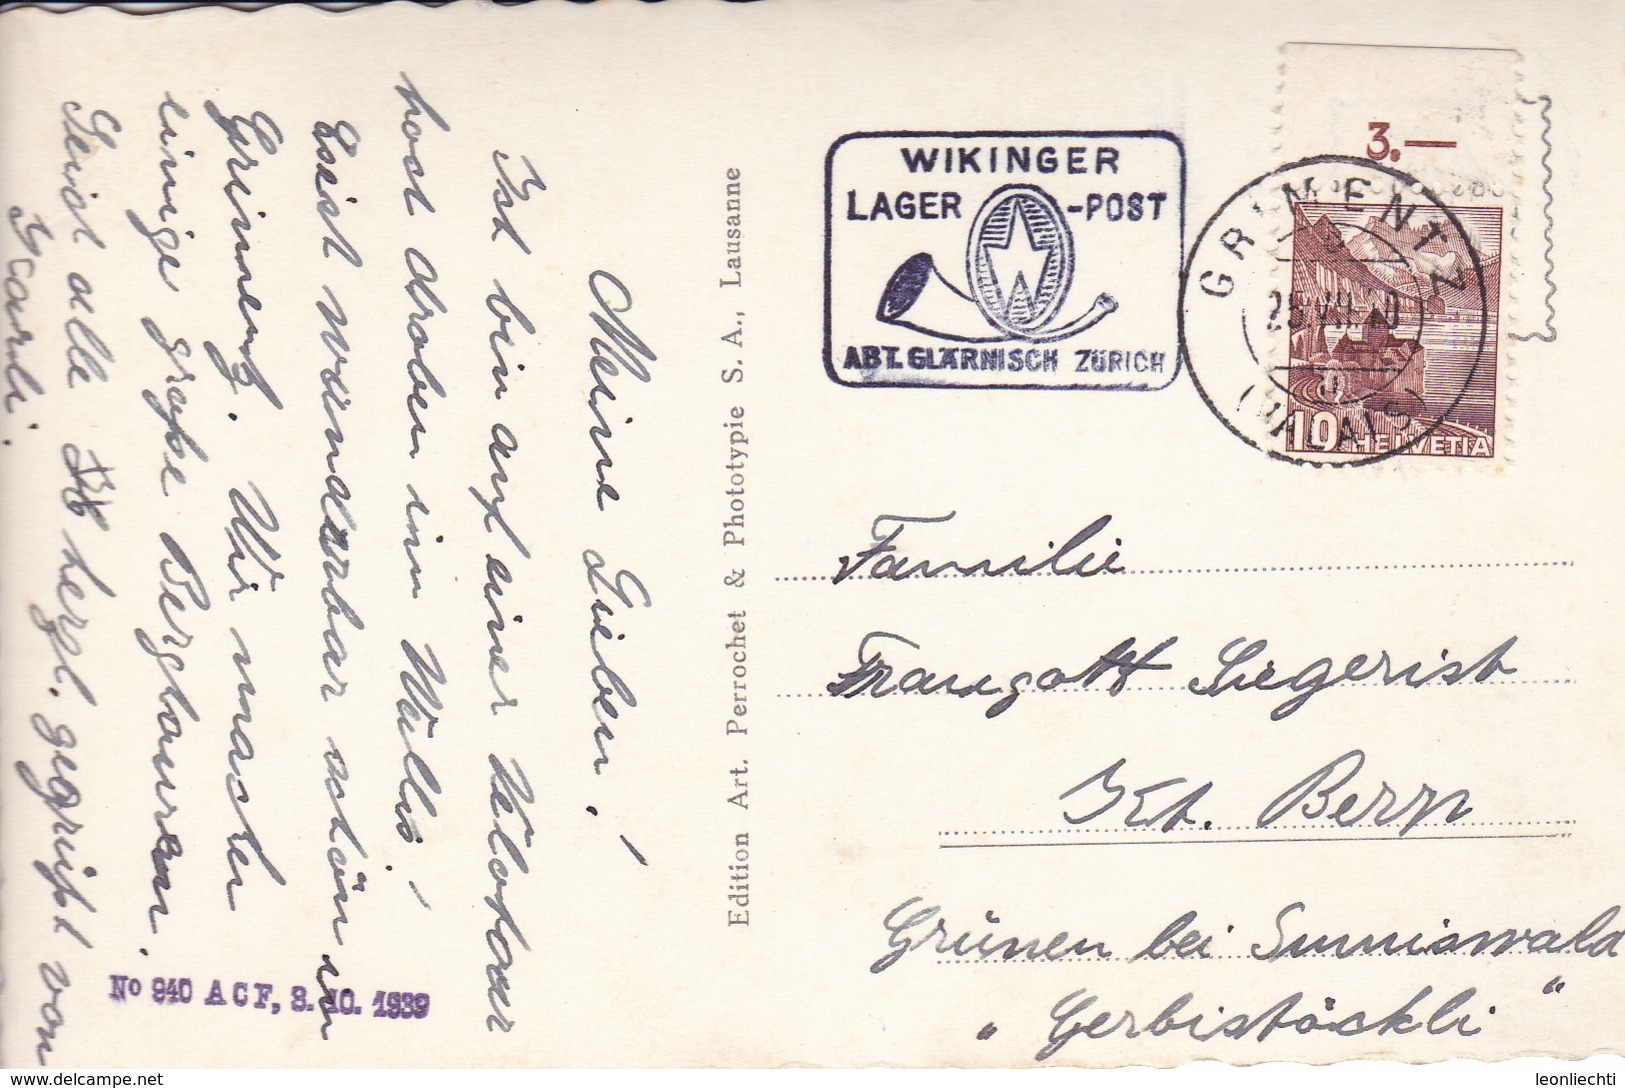 Meine Lieben!
Ich bin auf einer Velotour
hoch droben im Wallis!
Es ist wunderbar schön in
Grimenz. Wir machen
einige grosse Bergtouren.
Seid alle herzl. gegrüsst von
Karli.
No 940 ACF, 3. 10. 1939
Edition Art. Perrochet & Phototypie S. A., Lausanne
WIKINGER
LAGER -POST
ABT. GLÄRNISCH ZÜRICH
3.—
GRIMENTZ
(VALAIS)
10 HELVETIA
Familie
Traugott Siegerist
Kt. Bern
Grünen bei Sumiswald
„Gerbistöckli“
leonliechti